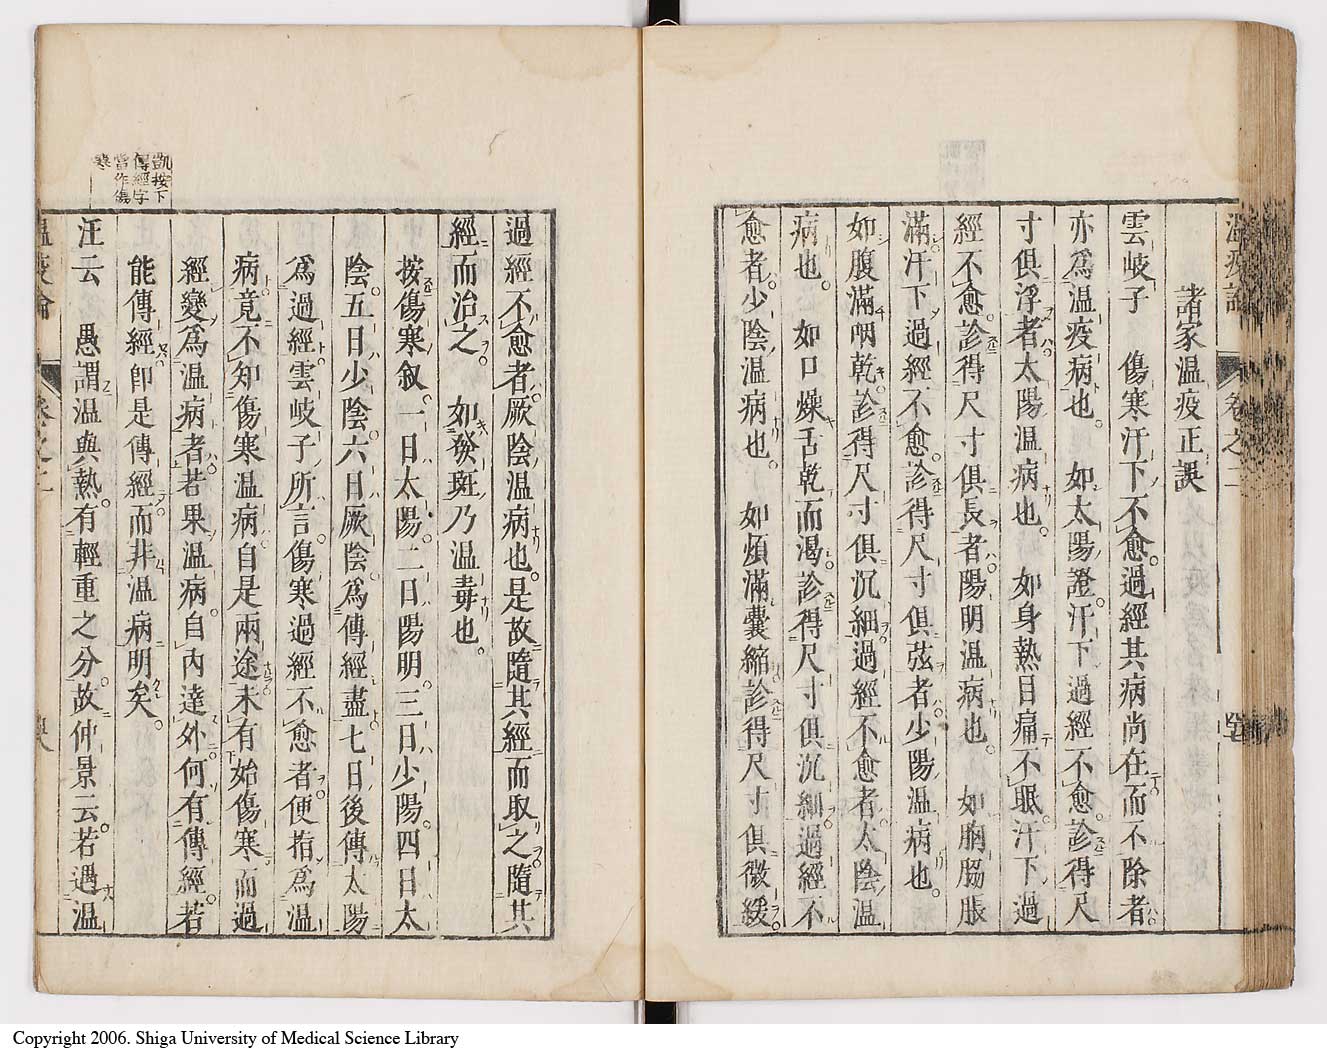 諸家温疫正誤
雲岐子　傷寒汗下不愈過經其病尚在而不除者
亦爲温疫病也。如太陽證。汗下過經不愈。診得尺
寸俱浮者。太陽温病也。如身熱目痛不眠。汗下過
經不愈。診得尺寸俱長者。陽明温病也。如胸脇脹
滿。汗下過經不愈。診得尺寸俱弦者。少陽温病也。
如腹滿咽乾。診得尺寸俱沉細過經不愈者。太陰温
病也。如口燥舌乾而渴。診得尺寸俱沉細過經不
愈者。少陰温病也。如煩滿囊縮。診得尺寸俱微緩
過經不愈者。厥陰温病也。是故隨其經而取之。隨其
經而治之。如發斑乃温毒也。
按傷寒敘。一日太陽。二日陽明。三日少陽。四日太
陰。五日少陰。六日厥陰。爲傳經盡。七日後傳太陽
爲過經。雲岐子所言傷寒過經不愈者。便指爲温
病。竟不知傷寒温病自是兩途。未有始傷寒而過
經變爲温病者。若果温病。自内達外。何有傳經。若
能傳經。即是傳經。而非温病明矣。
汪云　愚謂温與熱。有輕重之分。故仲景云。若遇温
凱按下
傳經字
當作傷
寒
温疫論
卷之二